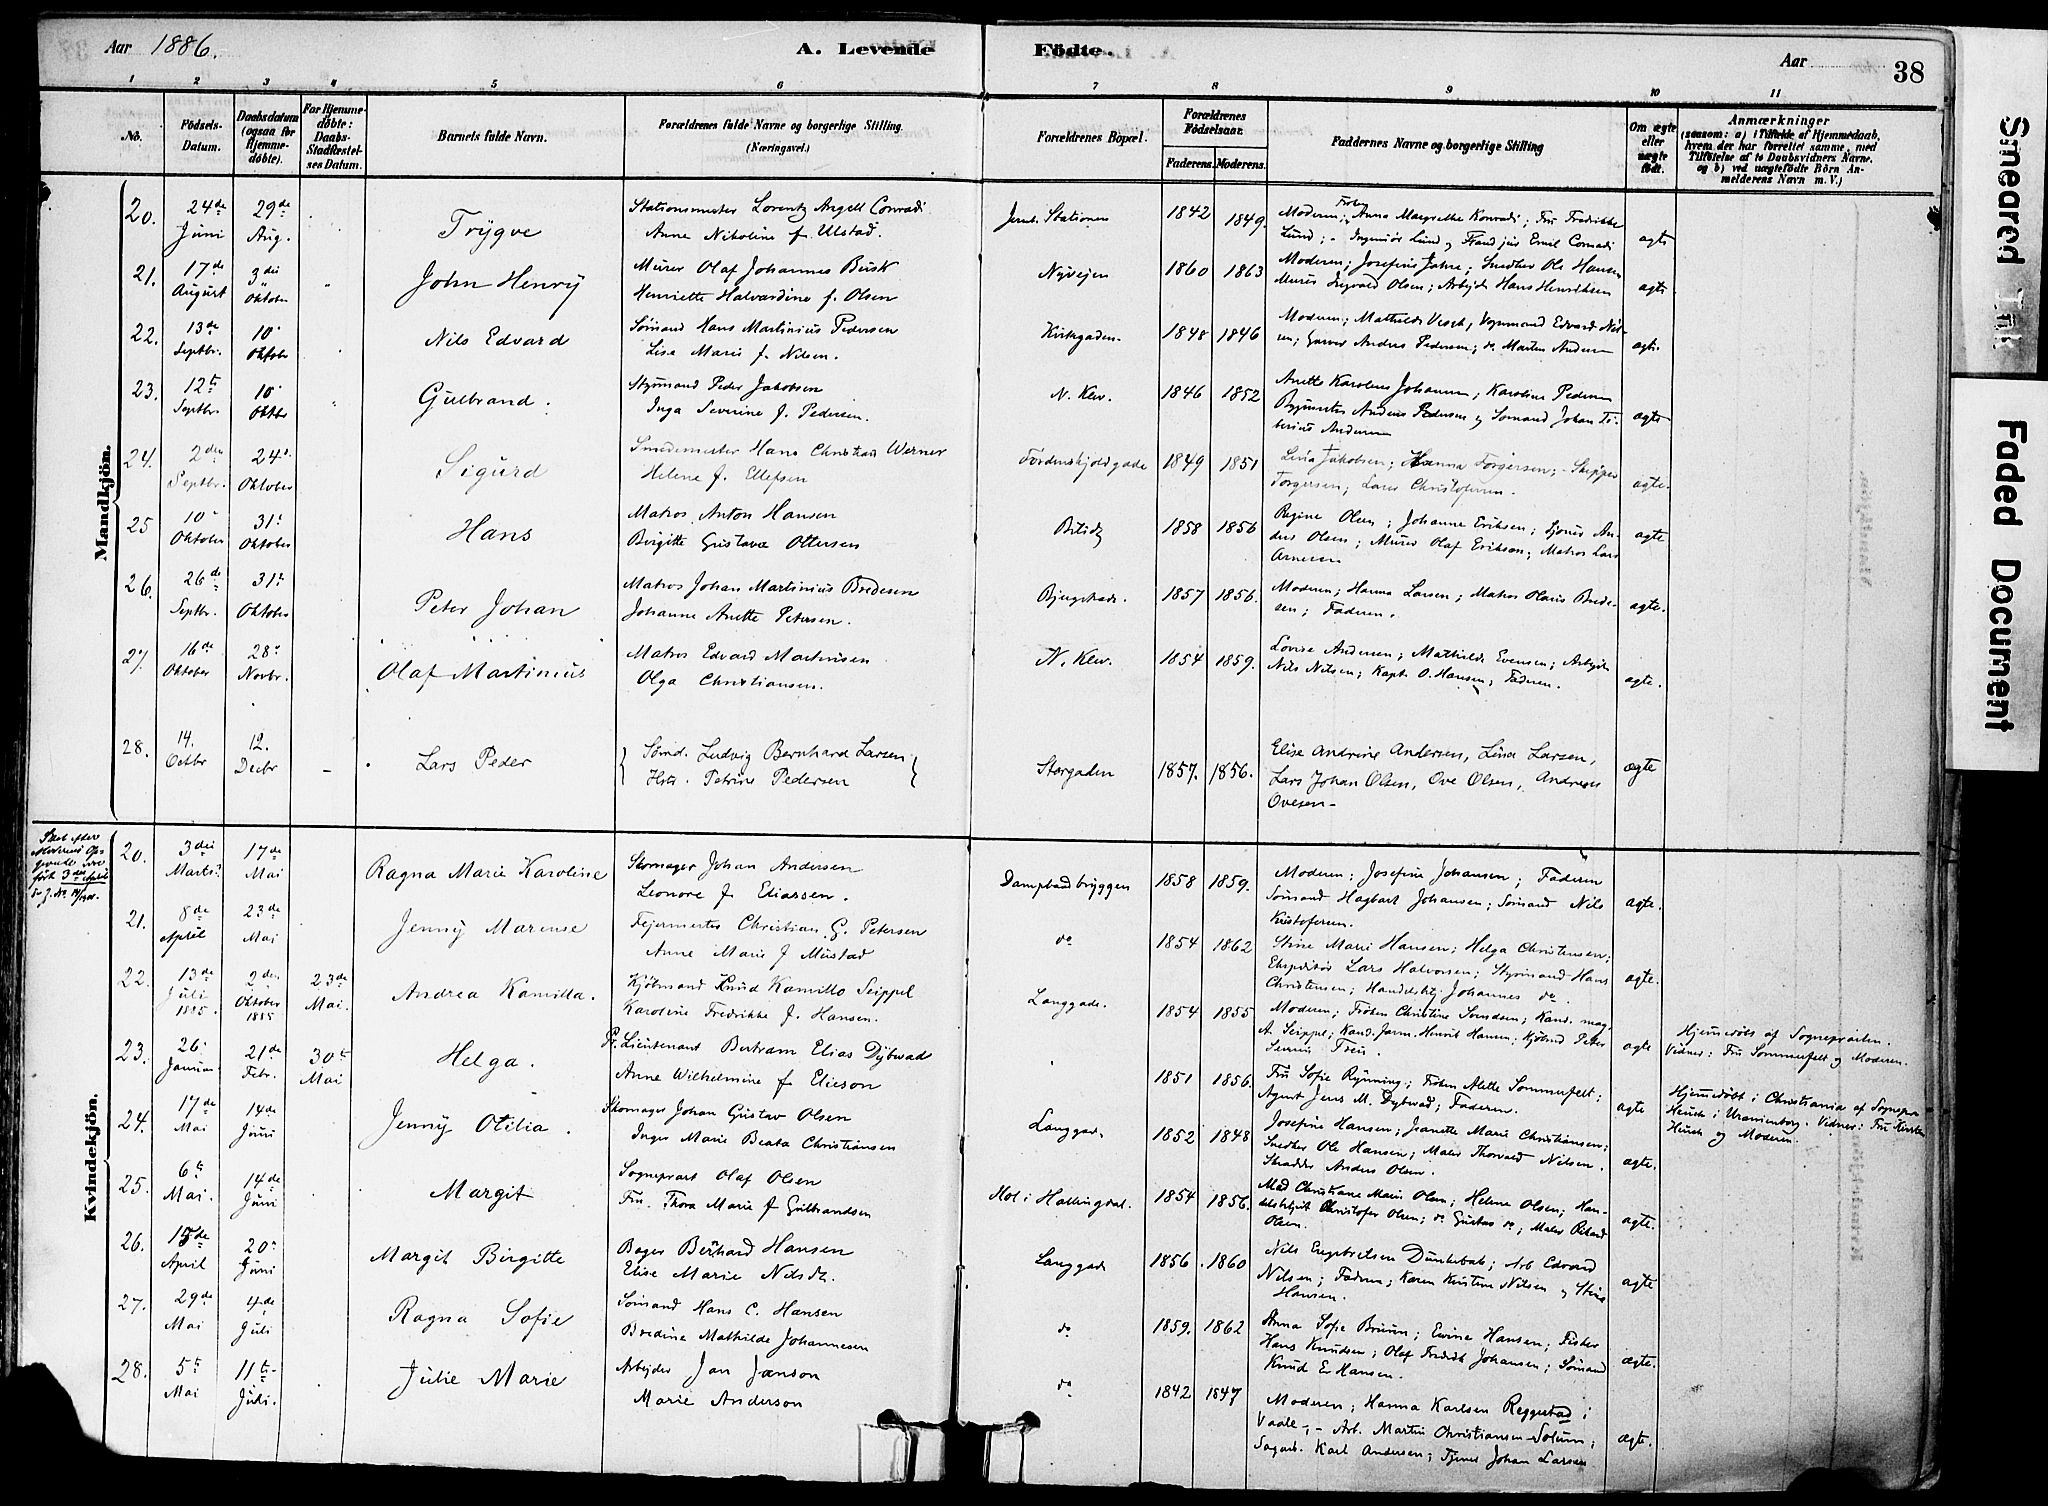 Aar 1886.
A. Levende
Fødte.
Aar
38
1 2 3 4 5 6 7 8 9 10 11
No.
Fødsels-Datum.
Daabsdatum (ogsaa for Hjemmedøbte).
For Hjemmedøbte: Daabs-Stadfæstelses Datum.
Barnets fulde Navn.
Forældrenes fulde Navne og borgerlige Stilling. (Næringsvei.)
Forældrenes Bopæl.
Forældrenes Fødselsaar.
Faderens. Moderens.
Faddernes Navne og borgerlige Stilling
Om ægte eller uægte født.
Anmærkninger
(saasom: a) i Tilfælde af Hjemmedaab,
hvem der har forrettet samme, med
Tilføielse af to Daabsvidners Navne,
og b) ved uægtefødte Børn An-
melderens Navn m. V.)
Mandkjøn.
20. 24de Juni 29de Aug. Trygve
Stationsmester Lorentz Angell Conradi
Anne Nikoline f. Ulstad.
Jernb. Stationen 1842 1849.
Moderen; Frøken Anna Margrethe Konradi; Fru Fredrikke
Lund; - Ingeniør Lund og Kand jur Emil Conradi
ægte
21. 17de August 3die Oktober John Henry
Murer Olaf Johannes Busk
Henriette Halvardine f. Olsen
Nyvejen 1860 1863
Moderen; Josefine Jahre; Snedker Ole Hansen
Murer Ingvald Olsen; Arbejdr Hans Henriksen
ægte
22. 13de Septbr. 10 Oktober Nils Edvard
Sømand Hans Martinius Pedersen
Lisa Marie f. Nilsen.
Kirkegaden 1848 1846
Moderen; Mathilde Vesch, Vognmand Edvard Nil-
sen; Garver Andres Pedersen; do Marten Andersen
ægte.
23. 12te Septbr. 10 Oktbr Gulbrand.
Styrmand Peder Jakobsen
Inga Severine f. Pedersen.
N. Klev. 1846 1852
Anette Karoline Johansen; Karoline Pedersen
Bygmester Andreas Pedersen og Sømand Johan Ti-
berius Andersen
ægte
24. 2den Septbr. 24de Oktober Sigurd
Smedemester Hans Christian Werner
Helene f. Ellefsen
Tordenskjoldgade 1849 1851
Lina Jakobsen; Hanna Torgersen; - Skipper
Torgersen; Lars Christofersen.
ægte.
25 10 Oktober 31 Oktober Hans
Matros Anton Hansen
Birgitte Gustava Ottersen
1858 1856
Regine Olsen; Johanne Eriksen; Tjener An-
ders Olsen; Murer Olaf Eriksen; Matros Lars
Arnesen.
ægte
26. 26de Septbr. 31te Oktober Peter Johan
Matros Johan Martinius Bredesen
Johanne Anette Petersen.
1857 1856.
Moderen; Hanna Larsen; Matros Olaus Brede-
sen; Faderen.
ægte.
27. 16de Oktober 28 Novbr. Olaf Martinius
Matros Edvard Martinsen
Olga Christiansen.
N. Klev. 1854 1859.
Lovise Andersen; Mathilde Evensen; Arbejdr
Nils Nilsen; Kapt. O. Hansen; Faderen.
ægte.
28. 14. Octbr 12. Decbr - Lars Peder
Sømd. Ludvig Bernhard Larsen
Hstr. Petrine Pedersen
Storgaden 1857. 1856.
Elise Andrine Andersen, Lina Larsen,
Lars Johan Olsen, Ove Olsen, Andreas
Ovesen -
ægte
Kvindekjøn.
20. 3die Marts? 17de Mai Ragna Marie Karoline
Skomager Johan Andersen
Leonore f. Eliassen.
Dampbaadbryggen 1858 1859.
Moderen; Josefine Johansen; Faderen
Sømand Hagbart Johansen; Sømand Nils
Kristofersen.
ægte.
21. 8de April 23de Mai Jenny Marense
Fejermester Christian G. Petersen
Anne Marie f Mustad
do 1854 1862
Stine Marie Hansen; Helga Christensen;
Ekspeditør Lars Halvorsen; Styrmand Hans
Christensen; Handelsbtj Johannes do.
ægte.
22. 13de Juli 1885. 2den Oktober 1885 23de Mai. Andrea Kamilla.
Kjøbmand Knud Kamillo Seippel
Karoline Fredrikke f. Hansen.
Langgade. 1854 1855
Moderen; Frøken Christine Svendsen; Kand. mag.
A. Seippel; Kand. farm. Henrik Hansen; Kjøbmd Peter
ægte
Hjemmedøbt af Sognepræsten.
Vidner: Fru Sommerfelt og Moderen.
23. 26 Januar 21de Febr. 30te Mai Helga.
Pr. Lieutenant Bertram Elias Dybwad
Anne Wilhelmine f Elieson
1851 1856.
Fru Sofie Rynning; Frøken Alette Sommerfelt;
Agent Jens M. Dybwad; Faderen.
ægte
Hjemmedøbt i Christiania af Sognepr.
Heuch i Uranienborg. Vidner: Fru
Heuch og Moderen.
24. 17de Mai 14de Juni Jenny Otilia.
Skomager Johan Gustav Olsen
Inger Marie Beata Christiansen
Langgade 1852 1848
Josefine Hansen; Jeanette Marie Christiansen;
Snedker Ole Hansen; Maler Thorvald Nilsen.
Skrædder Anders Olsen.
ægte.
25. 6te Mai. 14de Juni Margit
Sogneprest Olaf Olsen
Fru. Thora Marie f Gulbrandsen
Hol i Hallingdal. 1854 1856.
Mad Christiane Marie Olsen; Helene Olsen; Han-
delsbtjt Christofer Olsen; do Gustav do; Maler Rikard
Olsen.
ægte.
26. 15de April 20 Juni Margit Birgitte
Bager Bernhard Hansen
Elise Marie Nilsdtr.
Langgade 1856. 1860
Nils Engebretsen Dunkebek; Arb Edvard
Nilsen; Faderen; Karen Kirstine Nilsen og Stina
Hansen.
ægte
27. 29de Mai 4de Juli Ragna Sofie
Sømand Hans C. Hansen
Bredine Mathilde Johannesen
do 1859. 1862
Anna Sofie Bruun; Ewine Hansen; Fisker
Hans Knudsen; Olaf Fredrik Johansen; Sømand
Knud E Hansen.
ægte.
28. 5te Mai 11te Juli. Julie Marie
Arbejder Jan Janson
Marie Anderson
do 1842 1847
Moderen; Hanna Karlsen Reggestad i
Vaale, - Arb. Martin Christiansen Solum;
Sagarb. Karl Andersen; Tjener Johan Larsen
ægte.
Smeared Ink
Faded Document